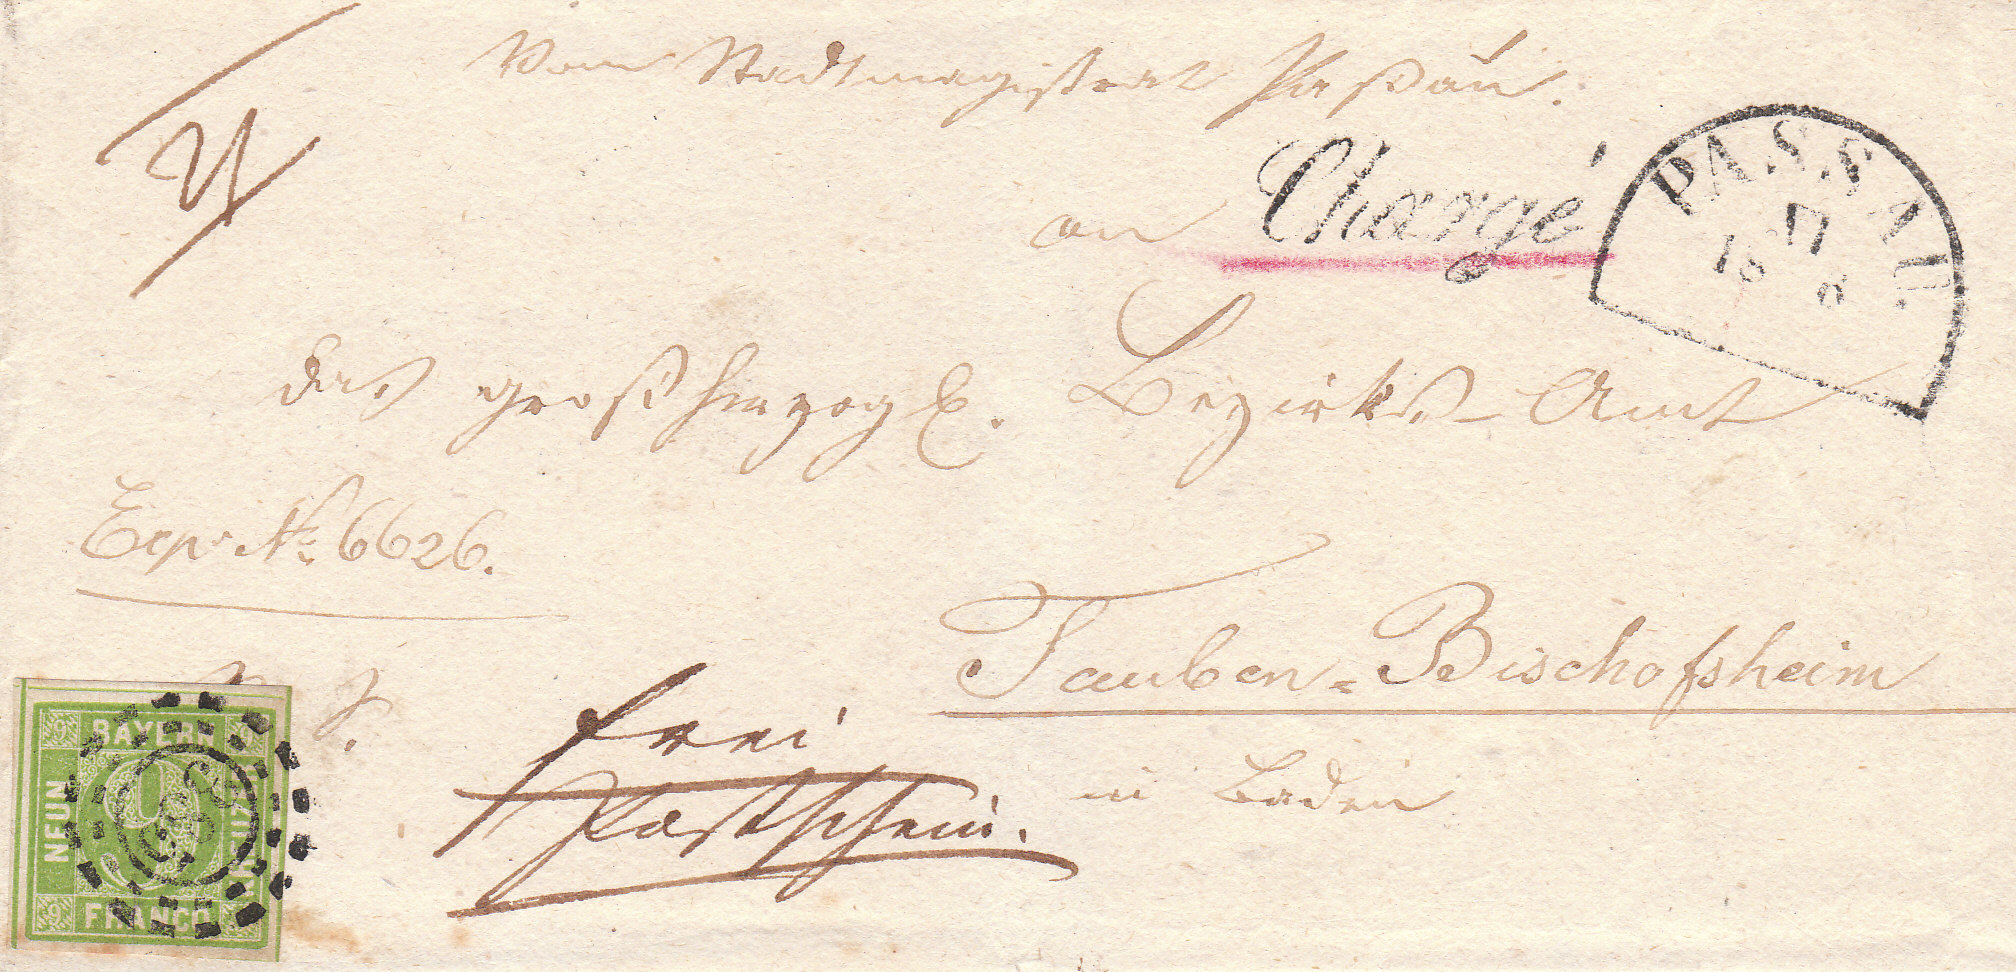 Vom Stadtmagistrat Paßau.
Chargé
PASSAU.
17
18 6
an
das großherzogl. Bezirks-Amt
Exp. No. 6626.
Tauben-Bischofsheim
in Baden
frei
Postschein.
BAYERN
NEUN
KREUZER
FRANCO
9